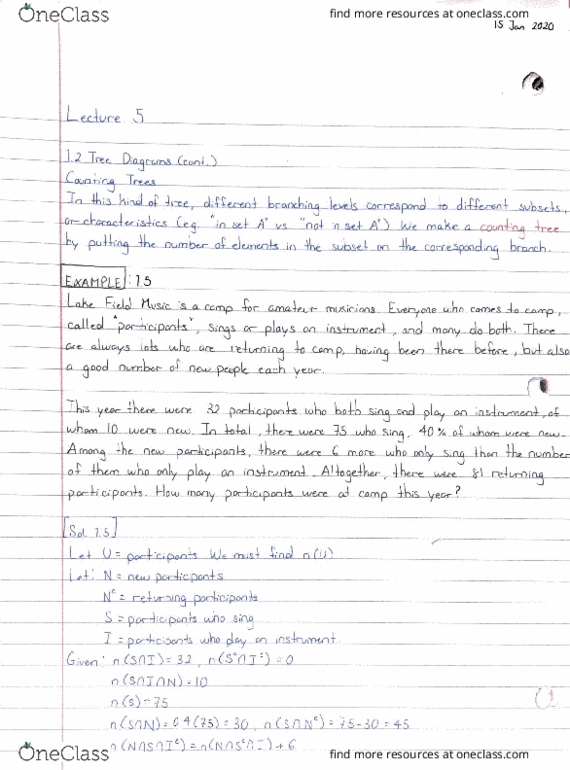 OneClass
find more resources at oneclass.com
15 Jan 2020
Lecture 5
1.2 Tree Diagrams (cont.)
Counting Trees
In this kind of tree, different branching levels correspond to different subsets,
or characteristics (eg. "in set A" vs "not in set A") We make a counting tree
by putting the number of elements in the subset on the corresponding branch.
EXAMPLE: 1.5
Lake Field Music is a camp for amateur musicians. Everyone who comes to camp,
called "participants", sings or plays an instrument, and many do both. There
are always lots who are returning to camp, having been there before, but also
a good number of new people each year.
This year there were 32 participants who both sing and play an instrument, of
whom 10 were new. In total, there were 75 who sing, 40% of whom were new.
Among the new participants, there were 6 more who only sing than the number
of them who only play an instrument. Altogether, there were 81 returning
participants. How many participants were at camp this year?
[Sol. 1.5]
Let U = participants We must find n(U)
Let: N = new participants
Nᶜ = returning participants
S = participants who sing
I = participants who play an instrument.
Given: n(S∩I) = 32, n(Sᶜ∩Iᶜ) = 0
n(S∩I∩N) = 10
n(S) = 75
n(S∩N) = 0.4(75) = 30, n(S∩Nᶜ) = 75-30 = 45
n(N∩S∩Iᶜ) = n(N∩Sᶜ∩I) + 6
OneClass
find more resources at oneclass.com